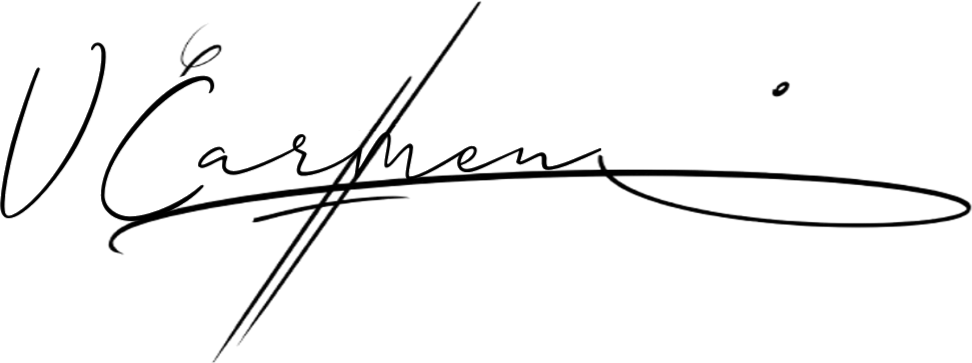 V Carmen